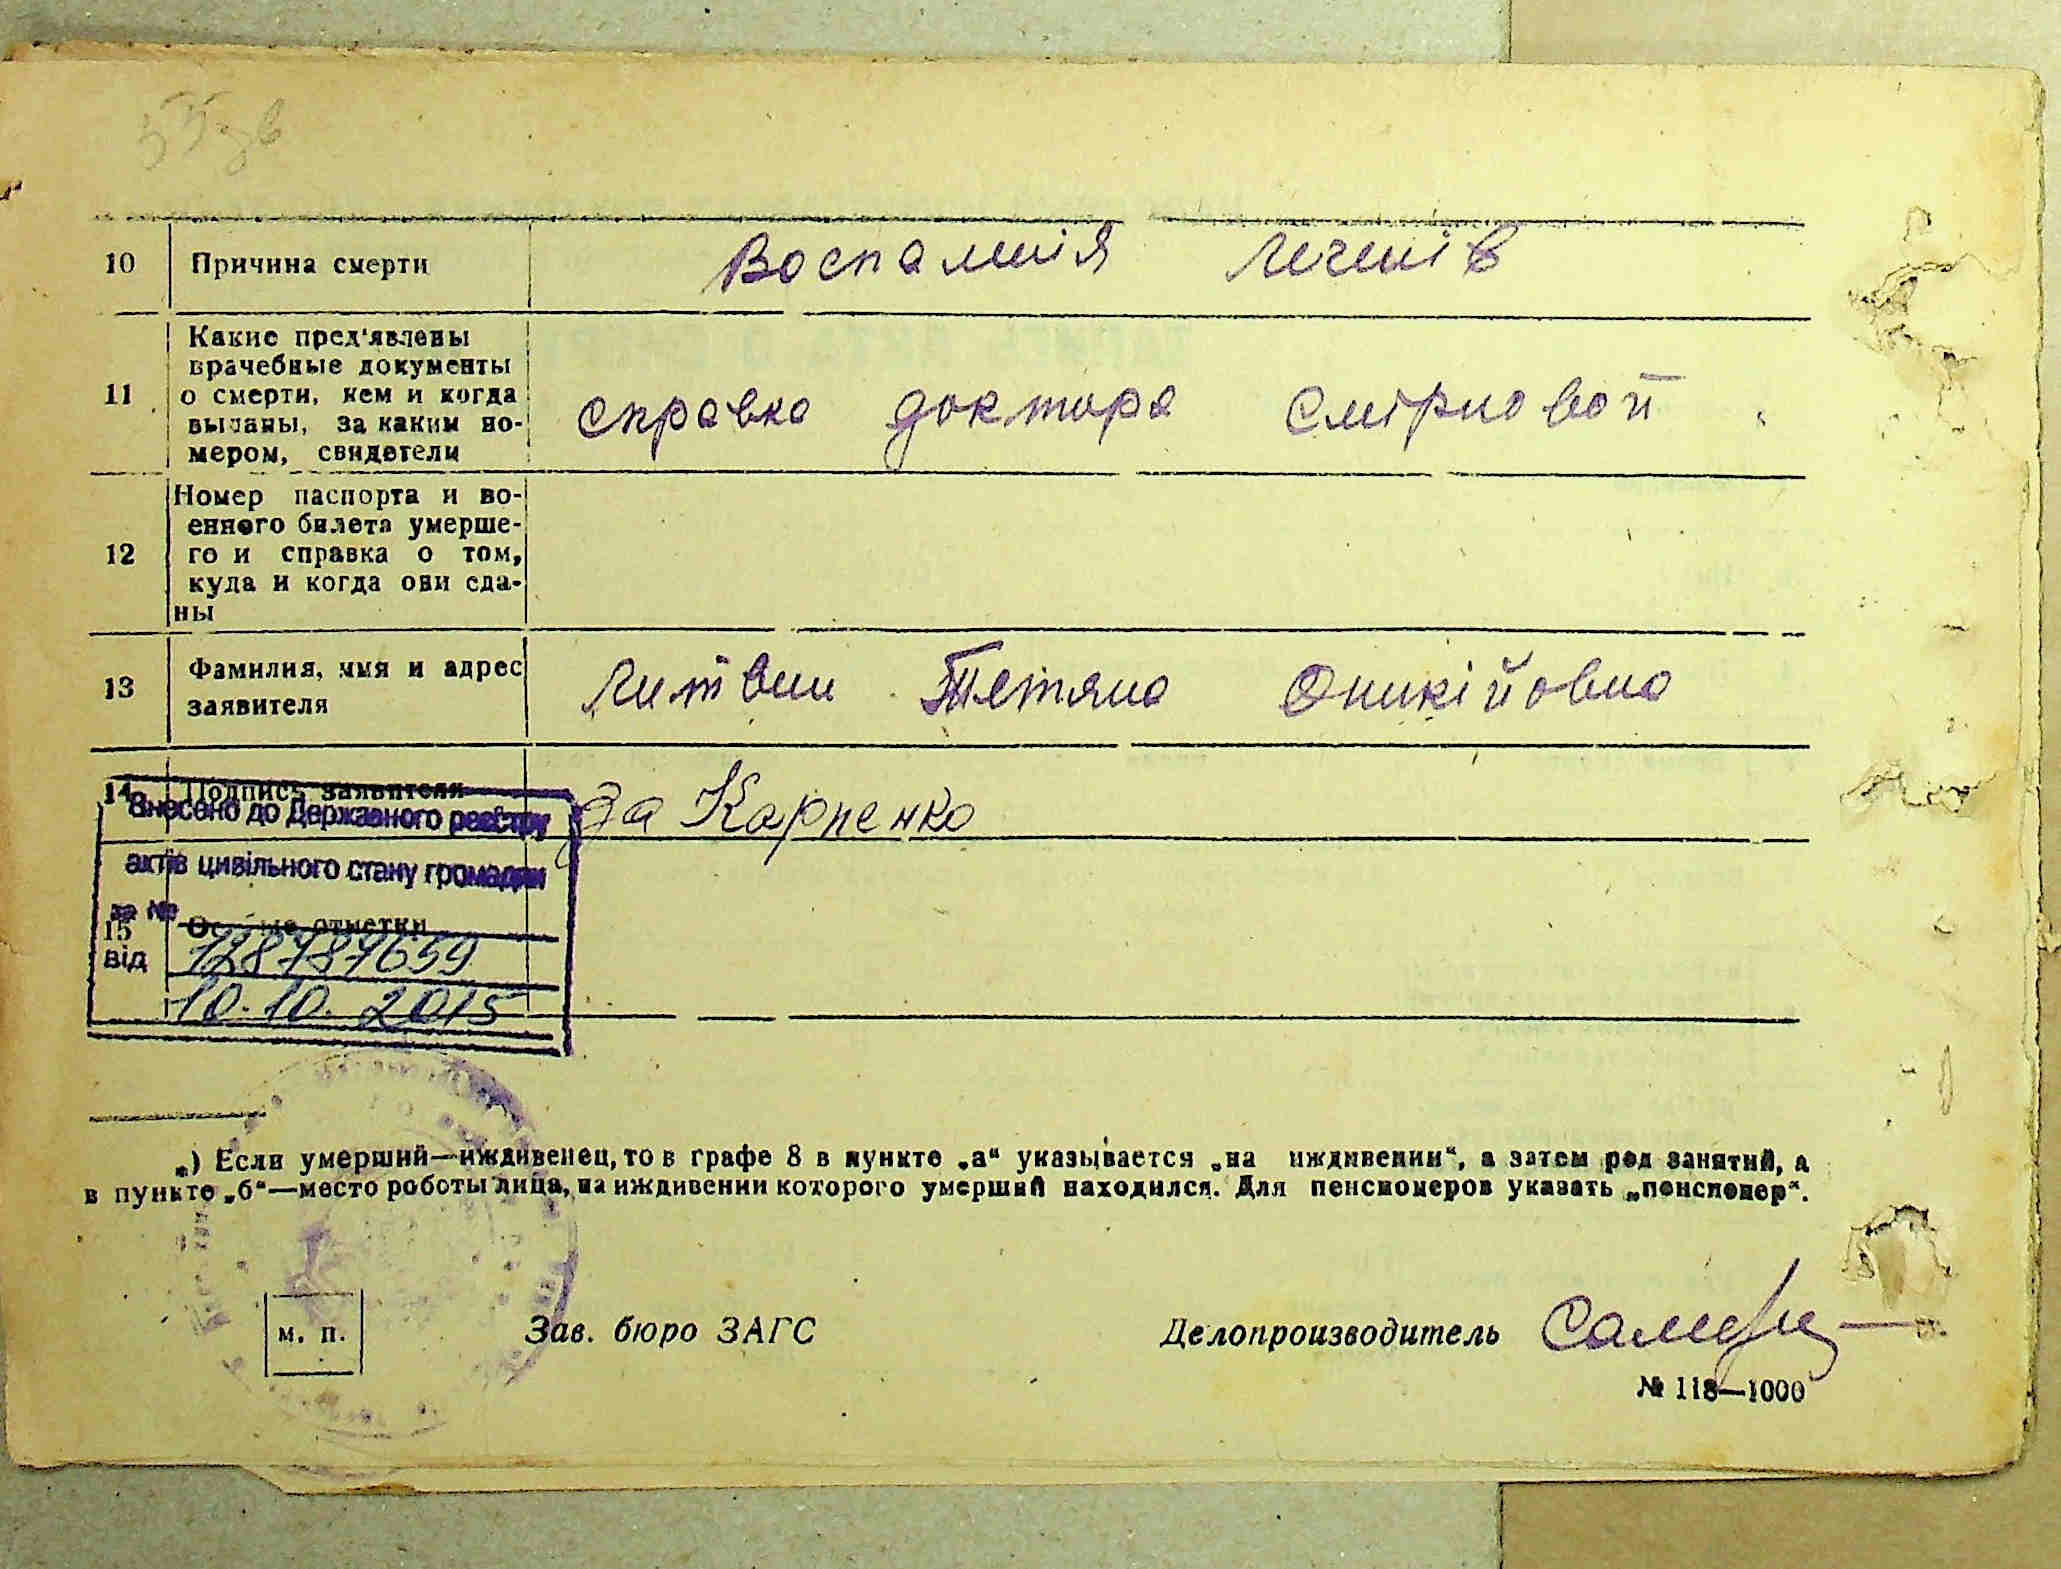 55 зв
10 Причина смерти Воспалния легенів
11 Какие пред'явлены
врачебные документы
о смерти, кем и когда
выданы, за каким но-
мером, свидетели
справка доктора Смірновой
12 Номер паспорта и во-
енного билета умерше-
го и справка о том,
куда и когда они сда-
ны
13 Фамилия, имя и адрес
заявителя
Литвин Тетяна Оникійовна
14 Подпись заявителя за Карпенко
Внесено до Державного реєстру
актів цивільного стану громадян
за №
15 Особые отметки
від 128787659
10.10.2015
*) Если умерший—иждивенец, то в графе 8 в пункте „а“ указывается „на иждивении“, а затем род занятий, а
в пункте „б“—место роботы лица, на иждивении которого умерший находился. Для пенсионеров указать „пенсионер“.
м. п. Зав. бюро ЗАГС Делопроизводитель
№ 118—1000